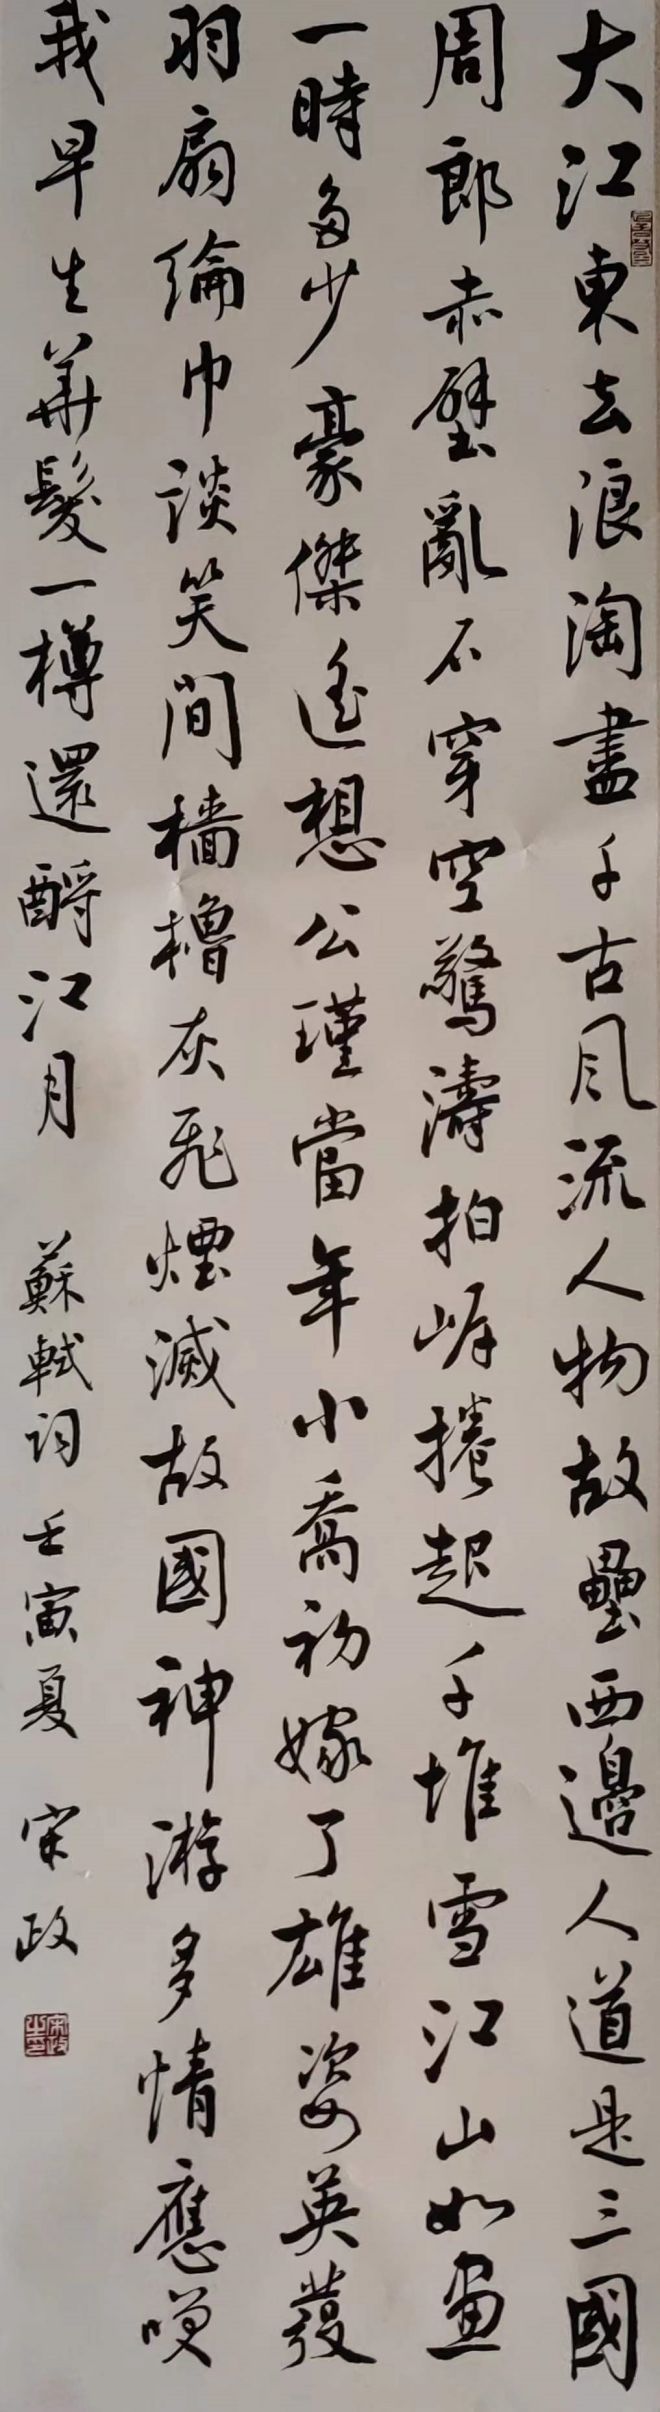 大江東去浪淘盡千古風流人物故壘西邊人道是三國
周郎赤壁亂石穿空驚濤拍岸捲起千堆雪江山如畫
一時多少豪傑遙想公瑾當年小喬初嫁了雄姿英發
羽扇綸巾談笑間檣櫓灰飛煙滅故國神游多情應嘆
我早生華髮一樽還酹江月 蘇軾詞 壬寅夏 宋政
宋政之印